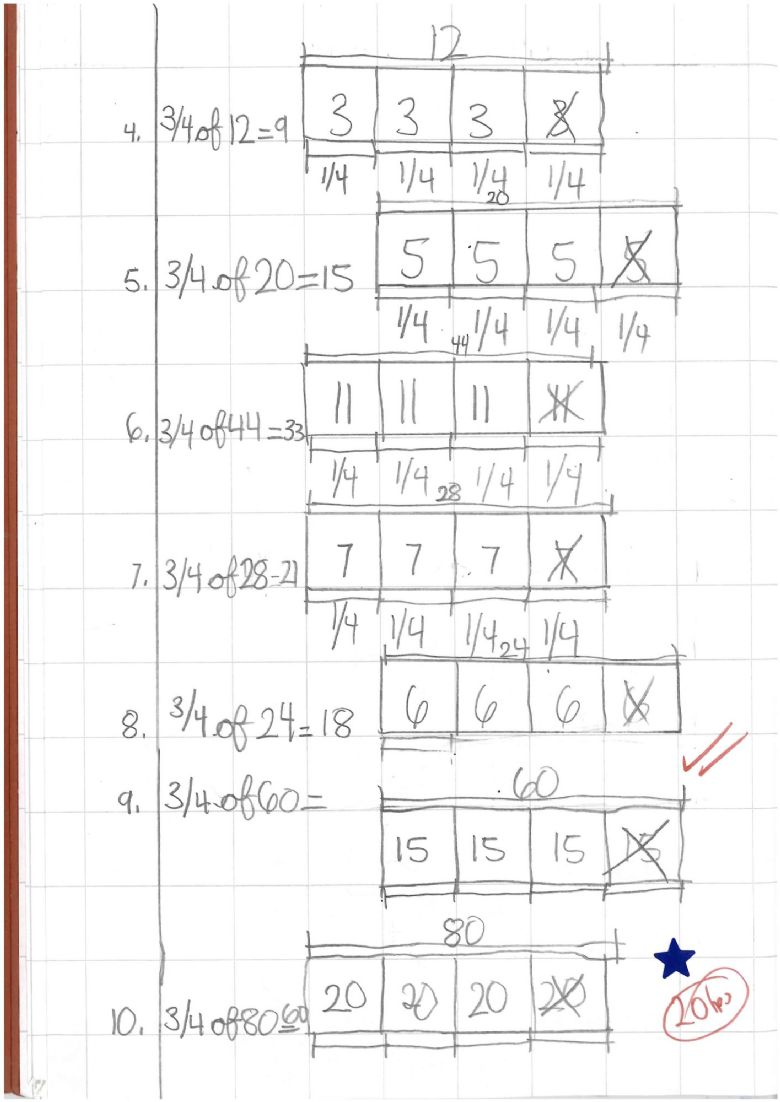 12
4. 3/4 of 12=9 3 3 3 3
1/4 1/4 1/4 1/4
20
5. 3/4 of 20=15 5 5 5 5
1/4 1/4 1/4 1/4
44
6. 3/4 of 44=33 11 11 11 11
1/4 1/4 1/4 1/4
28
7. 3/4 of 28-21 7 7 7 7
1/4 1/4 1/4 1/4
24
8. 3/4 of 24=18 6 6 6 6
9. 3/4 of 60=
60
15 15 15 15
80
10. 3/4 of 80=60 20 20 20 20